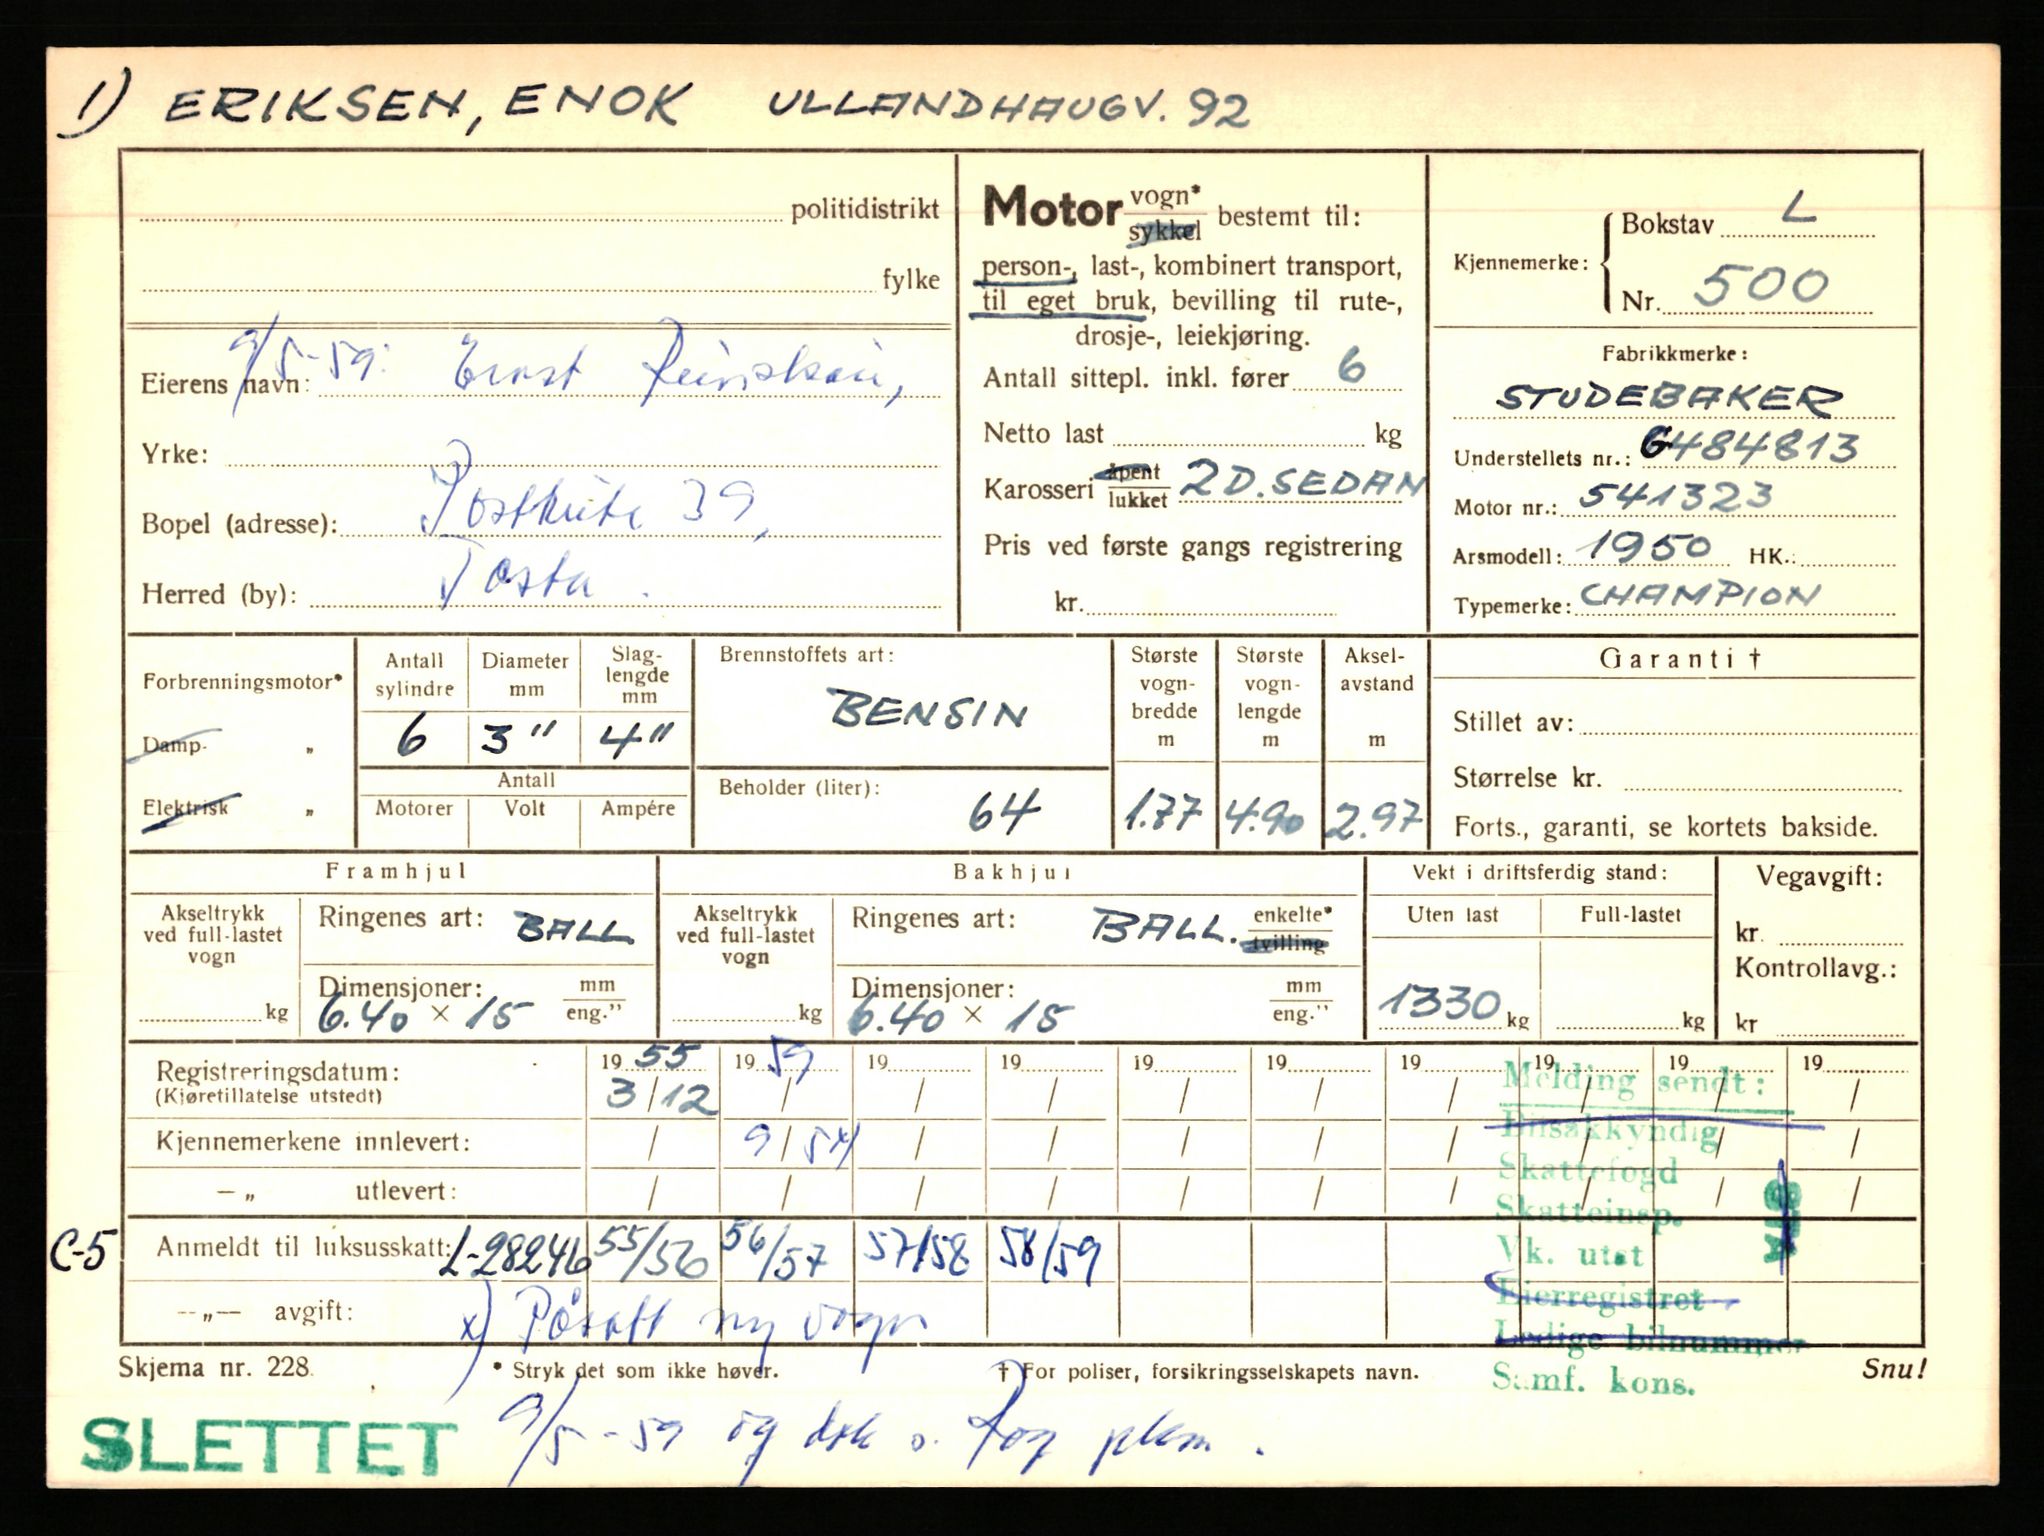 1) ERIKSEN, ENOK ULLANDHAUGV. 92
politidistrikt
fylke
9/5-59: Ernst
Eierens navn:
Yrke:
Bopel (adresse): 39,
Herred (by): Tasta.
Motor vogn* sykkel bestemt til:
person-, last-, kombinert transport,
til eget bruk, bevilling til rute-,
drosje-, leiekjøring.
Antall sittepl. inkl. fører 6
Netto last kg
Karosseri åpent lukket 2 D. SEDAN
Pris ved første gangs registrering
kr.
Kjennemerke: Bokstav L
Nr. 500
Fabrikkmerke:
STUDEBAKER
Understellets nr.: G484813
Motor nr.: 541323
Arsmodell: 1950 HK.:
Typemerke: CHAMPION
Forbrenningsmotor*
Damp- „
Elektrisk „
Antall sylindre
6
Diameter mm
3"
Slaglengde mm
4"
Antall
Motorer Volt Ampére
Brennstoffets art:
BENSIN
Beholder (liter):
64
Største vogn-bredde m
1.77
Største vogn-lengde m
4.90
Aksel-avstand m
2.97
Garanti †
Stillet av:
Størrelse kr.
Forts., garanti, se kortets bakside.
Framhjul
Akseltrykk ved full-lastet vogn
kg
Ringenes art: BALL
Dimensjoner: mm eng."
6.40 × 15
Bakhjul
Akseltrykk ved full-lastet vogn
kg
Ringenes art: BALL. enkelte* tvilling
Dimensjoner: mm eng."
6.40 × 15
Vekt i driftsferdig stand:
Uten last Full-lastet
1330 kg kg
Vegavgift:
kr.
Kontrollavg.:
kr
Registreringsdatum: 19 55 19 59 19 19 19 19 19 19 19 19
(Kjøretillatelse utstedt) 3/12 / / / / / / / / /
Kjennemerkene innlevert: / 9/5 x) / / / / / / / /
— „ utlevert: / / / / / / / / / /
C-5 Anmeldt til luksusskatt: L-28246 55/56 56/57 57/58 58/59
—„— avgift: x) Påsatt ny vogn
Melding sendt:
Bilsakkyndig
Skattefogd
Skatteinsp.
Vk. utst
Eierregistret
Ledige bilnummer
Samf. kons.
Skjema nr. 228.
* Stryk det som ikke høver.
† For poliser, forsikringsselskapets navn.
Snu!
SLETTET
9/5-59 og